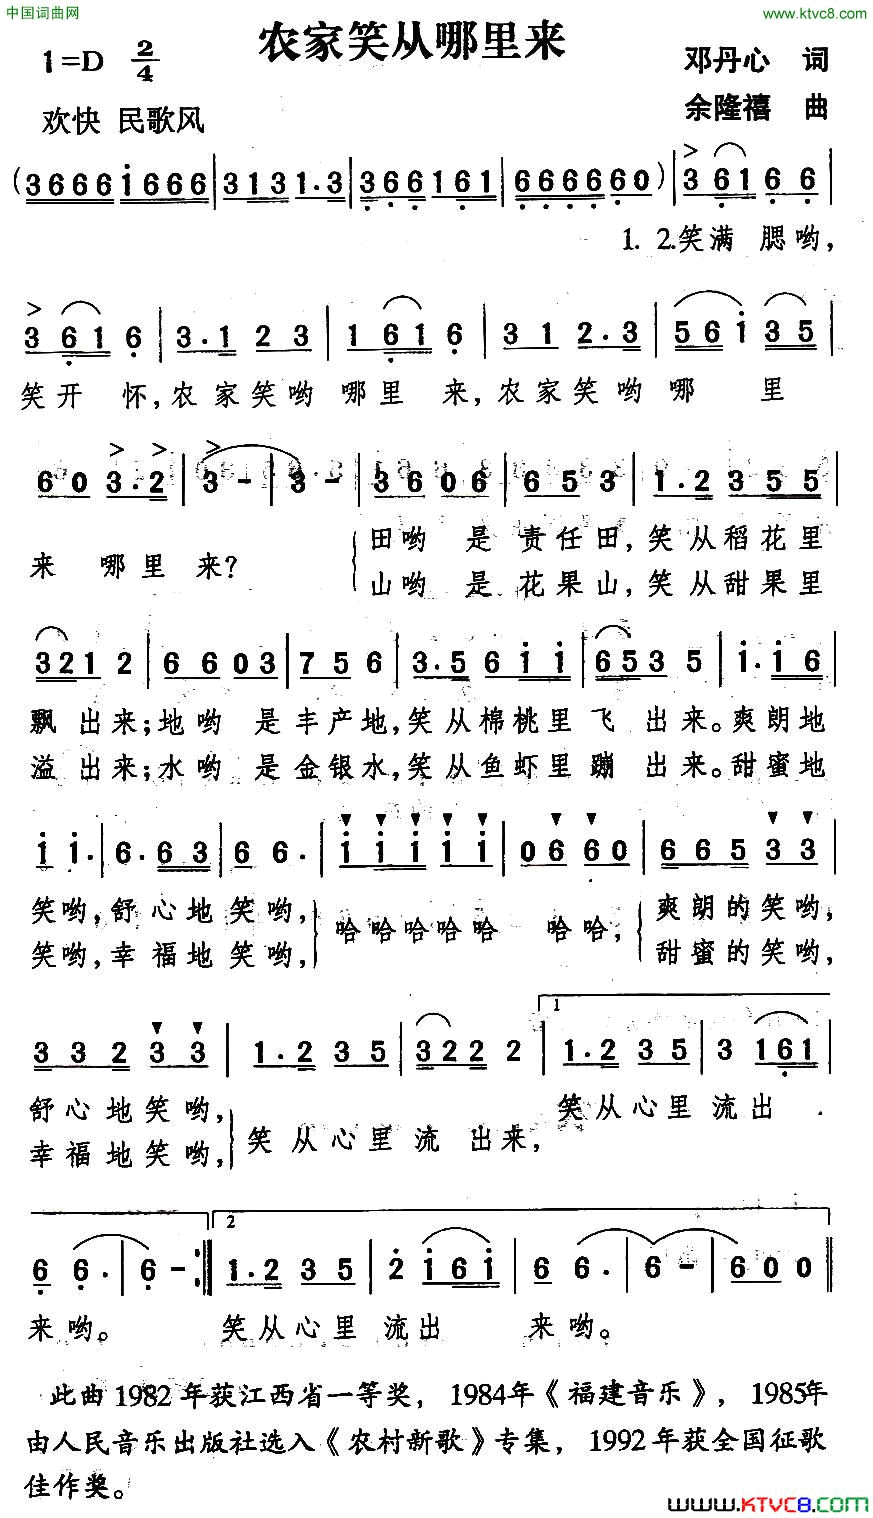 中国词曲网
www.ktvc8.com
农家笑从哪里来
1=D 2/4
邓丹心 词
欢快 民歌风
余隆禧 曲
(3666i666 | 3131.3 | 366161 | 6666660) | 36166 |
1. 2.笑满 腮哟,
3616 | 3.123 | 1616 | 312.3 | 56i35 |
笑开 怀,农家笑哟 哪里 来,农家笑哟哪 里
603.2 | 3- | 3- | 3606 | 653 | 1.2355 |
田哟 是 责任田,笑从稻花里
来 哪里 来?
山哟 是 花果山,笑从甜果里
3212 | 6603 | 756 | 3.56ii | 6535 | i.i6 |
飘出来;地哟 是丰产地,笑从棉桃里飞 出来。爽朗地
溢出来;水哟 是金银水,笑从鱼虾里蹦 出来。甜蜜地
ii. | 6.63 | 66. | iiiii | 0660 | 66533 |
笑哟,舒心地笑哟, 哈哈哈哈哈 哈哈, 爽朗的笑哟,
笑哟,幸福地笑哟, 甜蜜的笑哟,
33233 | 1.235 | 3222 | 1 1.235 | 3161 |
舒心地笑哟, 笑从心里流出
笑从心里流 出来,
幸福地笑哟,
66. | 6- :| 2 1.235 | 2i6i | 66. | 6- | 600 ‖
来哟。 笑从心里 流出 来哟。
此曲1982年获江西省一等奖，1984年《福建音乐》，1985年
由人民音乐出版社选入《农村新歌》专集，1992年获全国征歌
佳作奖。
www.KTVC8.com